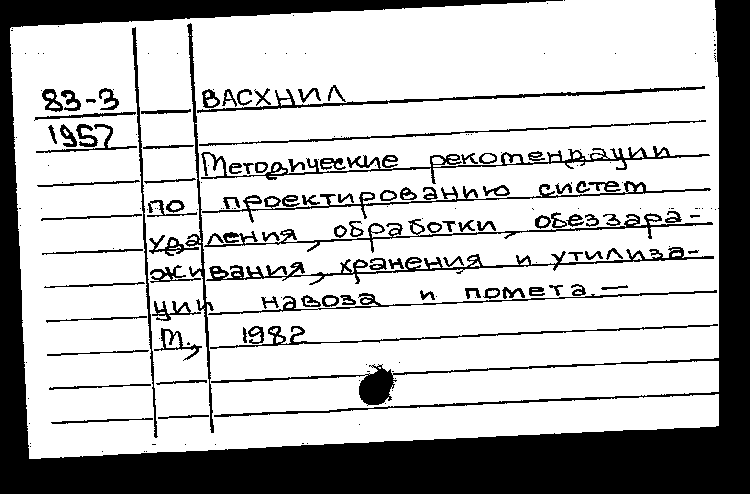 83-3 ВАСХНИЛ
1957
Методические рекомендации
по проектированию систем
удаления, обработки, обеззара-
живания, хранения и утилиза-
ции навоза и помета.—
М., 1982